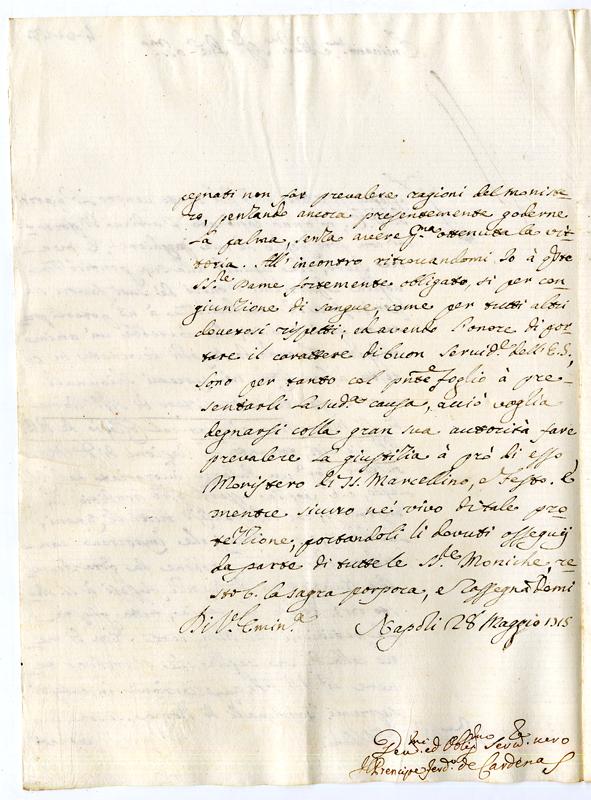 pegnati non far prevalere ragioni del moniste=
ro, pensando ancora presentemente goderne
la palma, senza avere p.ma ottenuta la vit=
toria. All' incontro ritrovandomi Io à q.ste
SS.re Dame fortemente obligato, sì per con=
giunzione di sangue, come per tutti altri
doverosi rispetti; ed avendo l'onore di por=
tare il carattere di buon servid.e dell' E. S.,
sono per tanto col pnte foglio à pre=
sentarli la sud.a causa, acciò voglia
degnarsi colla gran sua autorità fare
prevalere la giustizia à prò di esso
Monistero di SS. Marcellino, e Festo. E
mentre sicuro ne vivo di tale pro=
tezzione, portandoli li dovuti ossequij
da parte di tutte le SS.re Moniche, re=
sto b. la sagra porpora, e rassegnandomi
Di V.ra Emin.a Napoli 28 Maggio 1715
Dev.mo ed Oblig.mo Serv.e vero
Il Prencipe Ferd.o de Cardenas